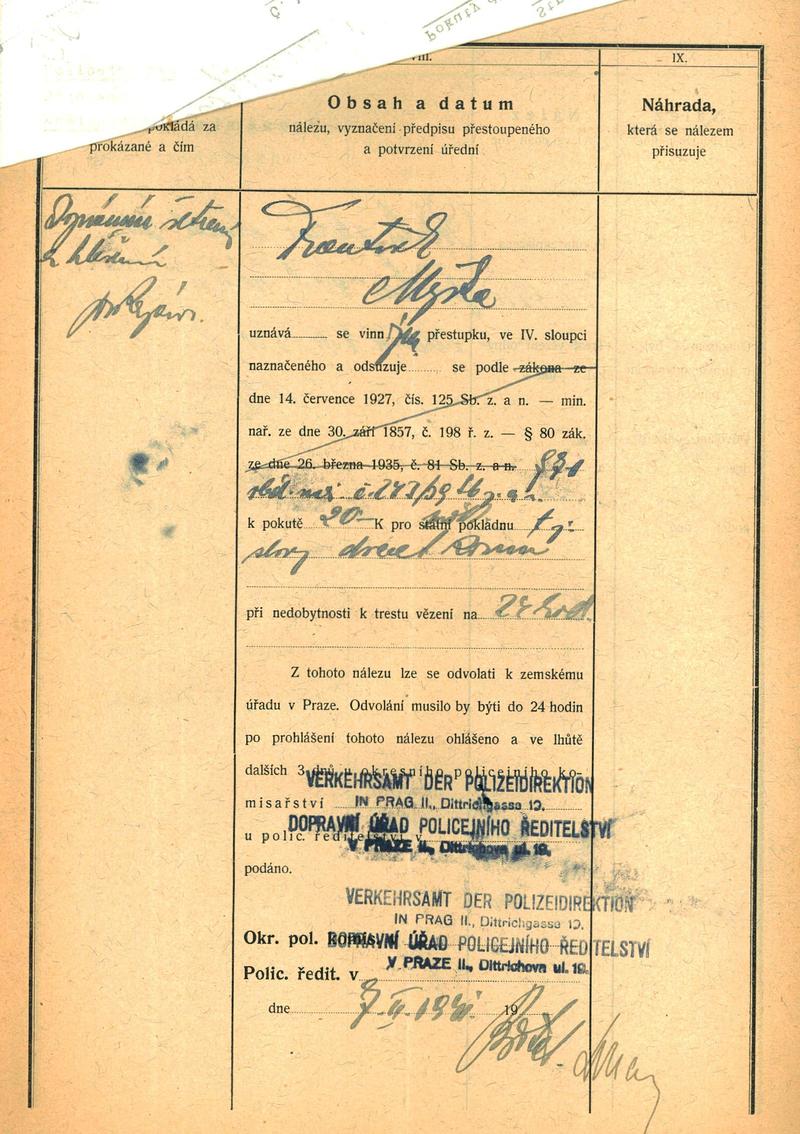 VIII.
IX.
pokládá za
prokázané a čím
Obsah a datum
nálezu, vyznačení předpisu přestoupeného
a potvrzení úřední
Náhrada,
která se nálezem
přisuzuje
František
uznává se vinn ým přestupku, ve IV. sloupci
naznačeného a odsuzuje se podle zákona ze
dne 14. července 1927, čís. 125 Sb. z. a n. — min.
nař. ze dne 30. září 1857, č. 198 ř. z. — § 80 zák.
ze dne 26. března 1935, č. 81 Sb. z. a n.
vlád. nař. č. 243/39 Sb. z. a n.
k pokutě 20 K pro státní pokladnu
slovy dvacet korun
při nedobytnosti k trestu vězení na 24 hod.
Z tohoto nálezu lze se odvolati k zemskému
úřadu v Praze. Odvolání musilo by býti do 24 hodin
po prohlášení tohoto nálezu ohlášeno a ve lhůtě
dalších 3 dnů u okresního policejního ko-
VERKEHRSAMT DER POLIZEIDIREKTION
misařství
IN PRAG II., Dittrichgasse 19.
DOPRAVNÍ ÚŘAD POLICEJNÍHO ŘEDITELSTVÍ
u polic. ředitelství v
V PRAZE II., Dittrichova ul. 19.
podáno.
VERKEHRSAMT DER POLIZEIDIREKTION
IN PRAG II., Dittrichgasse 19.
Okr. pol.
DOPRAVNÍ ÚŘAD POLICEJNÍHO ŘEDITELSTVÍ
V PRAZE II., Dittrichova ul. 19.
Polic. ředit. v
dne 19